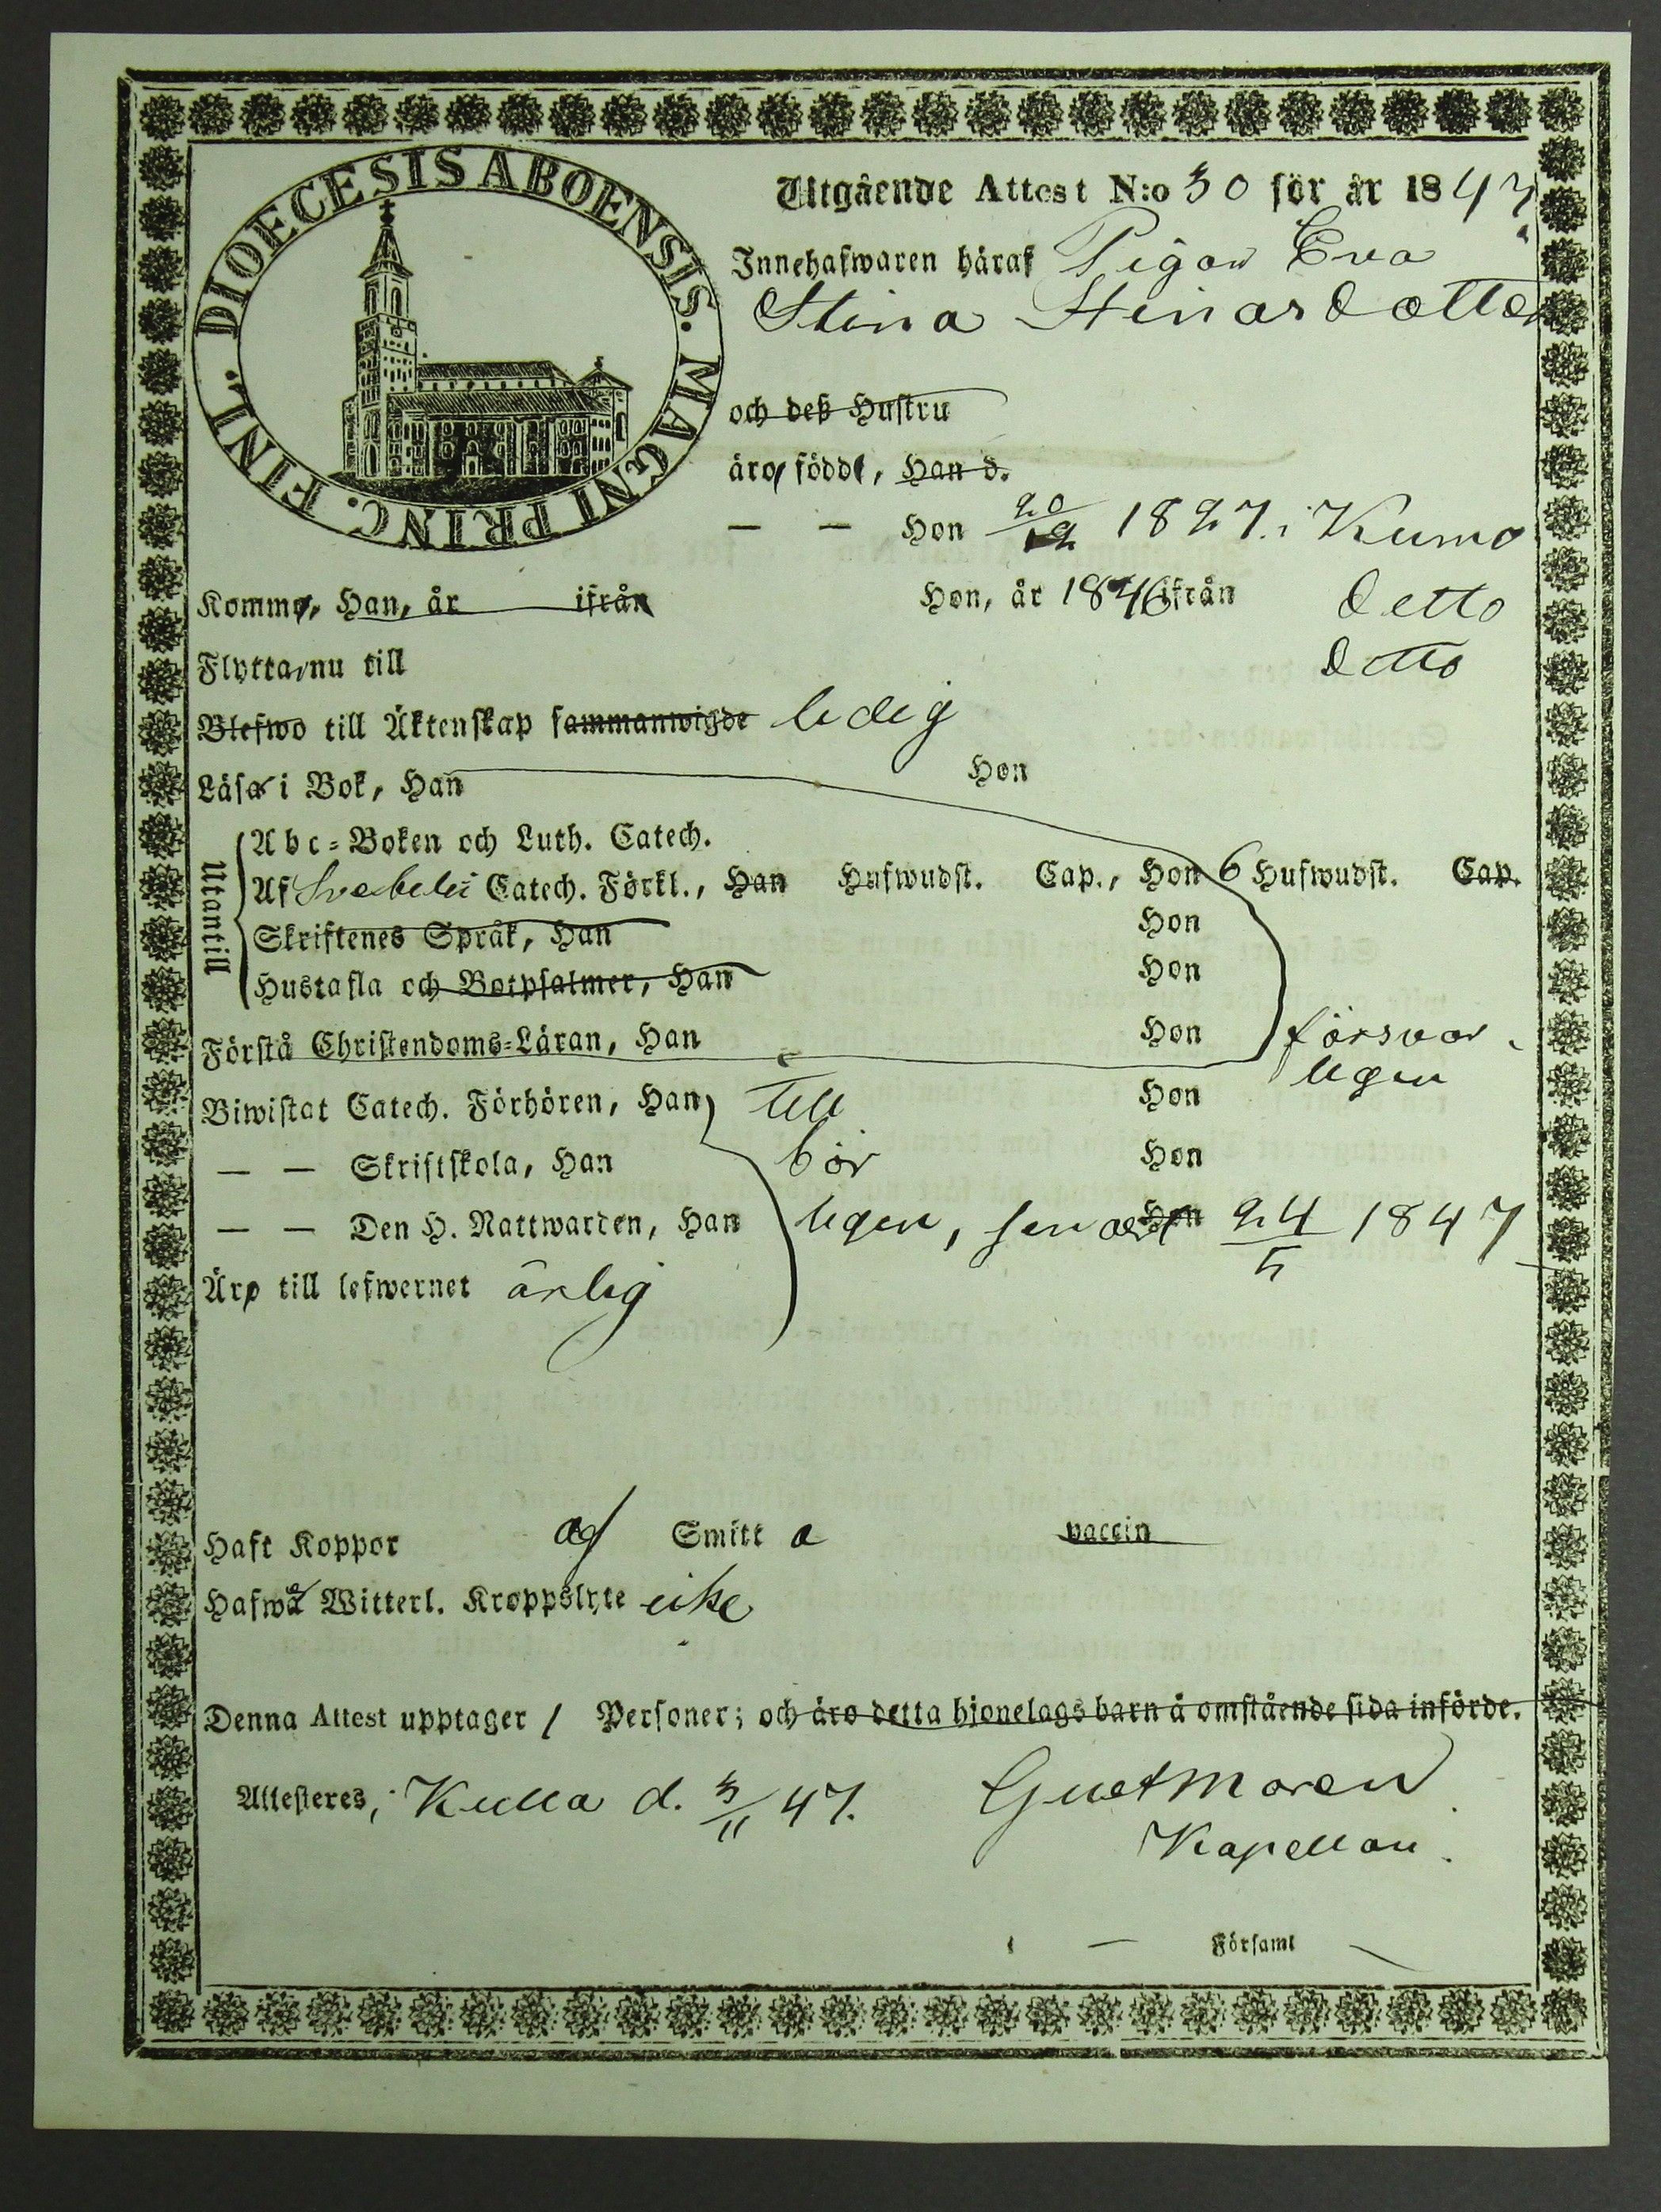 DIOECESIS ABOENSIS. MAGNI PRINC. FINL.
Utgående Attest N:o 30 för år 1847
Innehafwaren häraf Pigan Eva
Stina Hinasdotter
och deß Hustru
äro födde, Han d.
— — Hon 20/12 1827. i Kumo
Komme, Han, år ifrån Hon, år 1846 ifrån detto
Flytta nu till detto
Blefwo till Äktenskap sammanwigde ledig
Läsa i Bok, Han Hon
Utantill
Abc-Boken och Luth. Catech.
Af Svebelii Catech. Förkl., Han Hufwudst. Cap., Hon 6 Hufwudst. Cap.
Skriftenes Språk, Han Hon
Hustafla och Botpsalmer, Han Hon
Förstå Christendoms-Läran, Han Hon försvar-
ligen
Biwistat Catech. Förhören, Han till Hon
— — Skriftskola, Han bör Hon
— — Den H. Nattwarden, Han ligen, senast Hon 24/5 1847
Äro till lefwernet ärlig
Haft Koppor af Smitt a vaccin
Hafwa Witterl. Kroppslyte icke
Denna Attest upptager 1 Personer; och äro detta hjonelags barn å omstående sida införde.
Attesteres, Kulla d. 3/11 47. Gust Moren
Kapellan.
— Församl